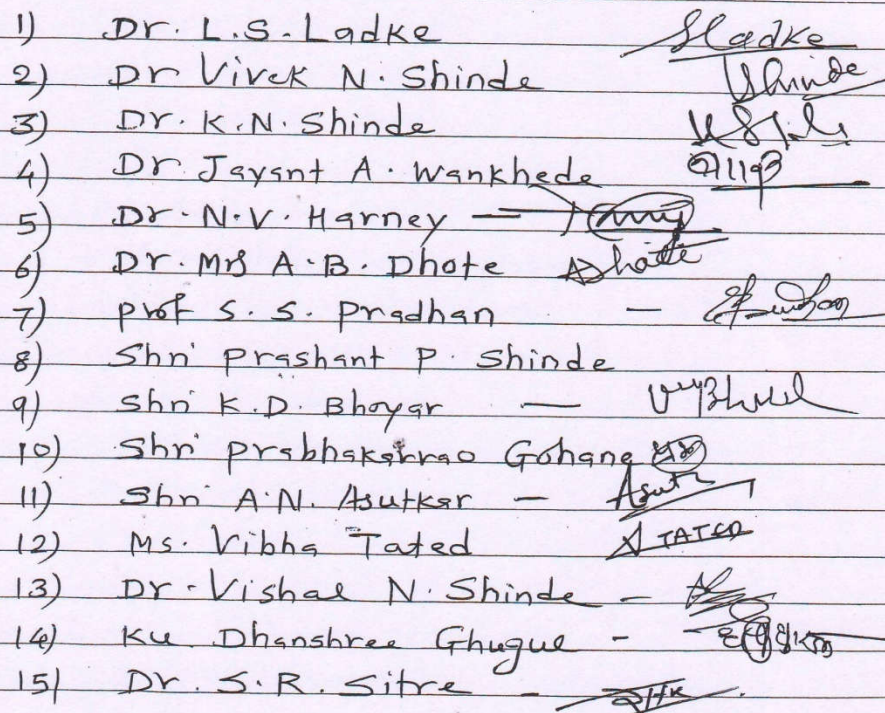 1) Dr. L.S. Ladke Sladke
2) Dr Vivek N. Shinde VShinde
3) Dr. K.N. Shinde
4) Dr Jayant A. Wankhede
5) Dr. N.V. Harney —
6) Dr. Mrs A.B. Dhote ADhote
7) Prof S. S. Pradhan —
8) Shri Prashant P. Shinde
9) Shri K.D. Bhoyar —
10) Shri Prabhakarrao Gohane
11) Shri A.N. Asutkar —
12) Ms. Vibha Tated TATED
13) Dr. Vishal N. Shinde —
14) Ku Dhanshree Ghugul -
15) Dr. S.R. Sitre -